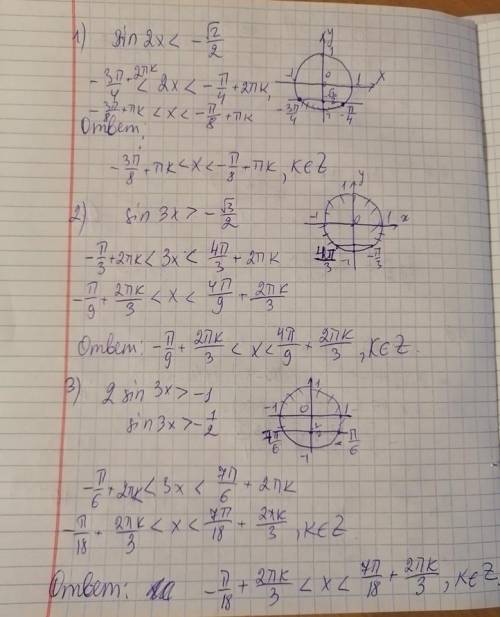 1) sin 2x < -√2/2
-3π/4 + 2πk < 2x < -π/4 + 2πk,
-3π/8 + πk < x < -π/8 + πk
Ответ:
-3π/8 + πk < x < -π/8 + πk, k∈Z
y
1
-1 0 1 x
-3π/4 -1 -π/4
2) sin 3x > -√3/2
-π/3 + 2πk < 3x < 4π/3 + 2πk
-π/9 + 2πk/3 < x < 4π/9 + 2πk/3
Ответ: -π/9 + 2πk/3 < x < 4π/9 + 2πk/3, k∈Z.
y
1
-1 0 1 x
4π/3 -1 -π/3
3) 2 sin 3x > -1
sin 3x > -1/2
-π/6 + 2πk < 3x < 7π/6 + 2πk
-π/18 + 2πk/3 < x < 7π/18 + 2πk/3, k∈Z
Ответ: -π/18 + 2πk/3 < x < 7π/18 + 2πk/3, k∈Z.
1
-1 0 1
7π/6 -π/6
-1